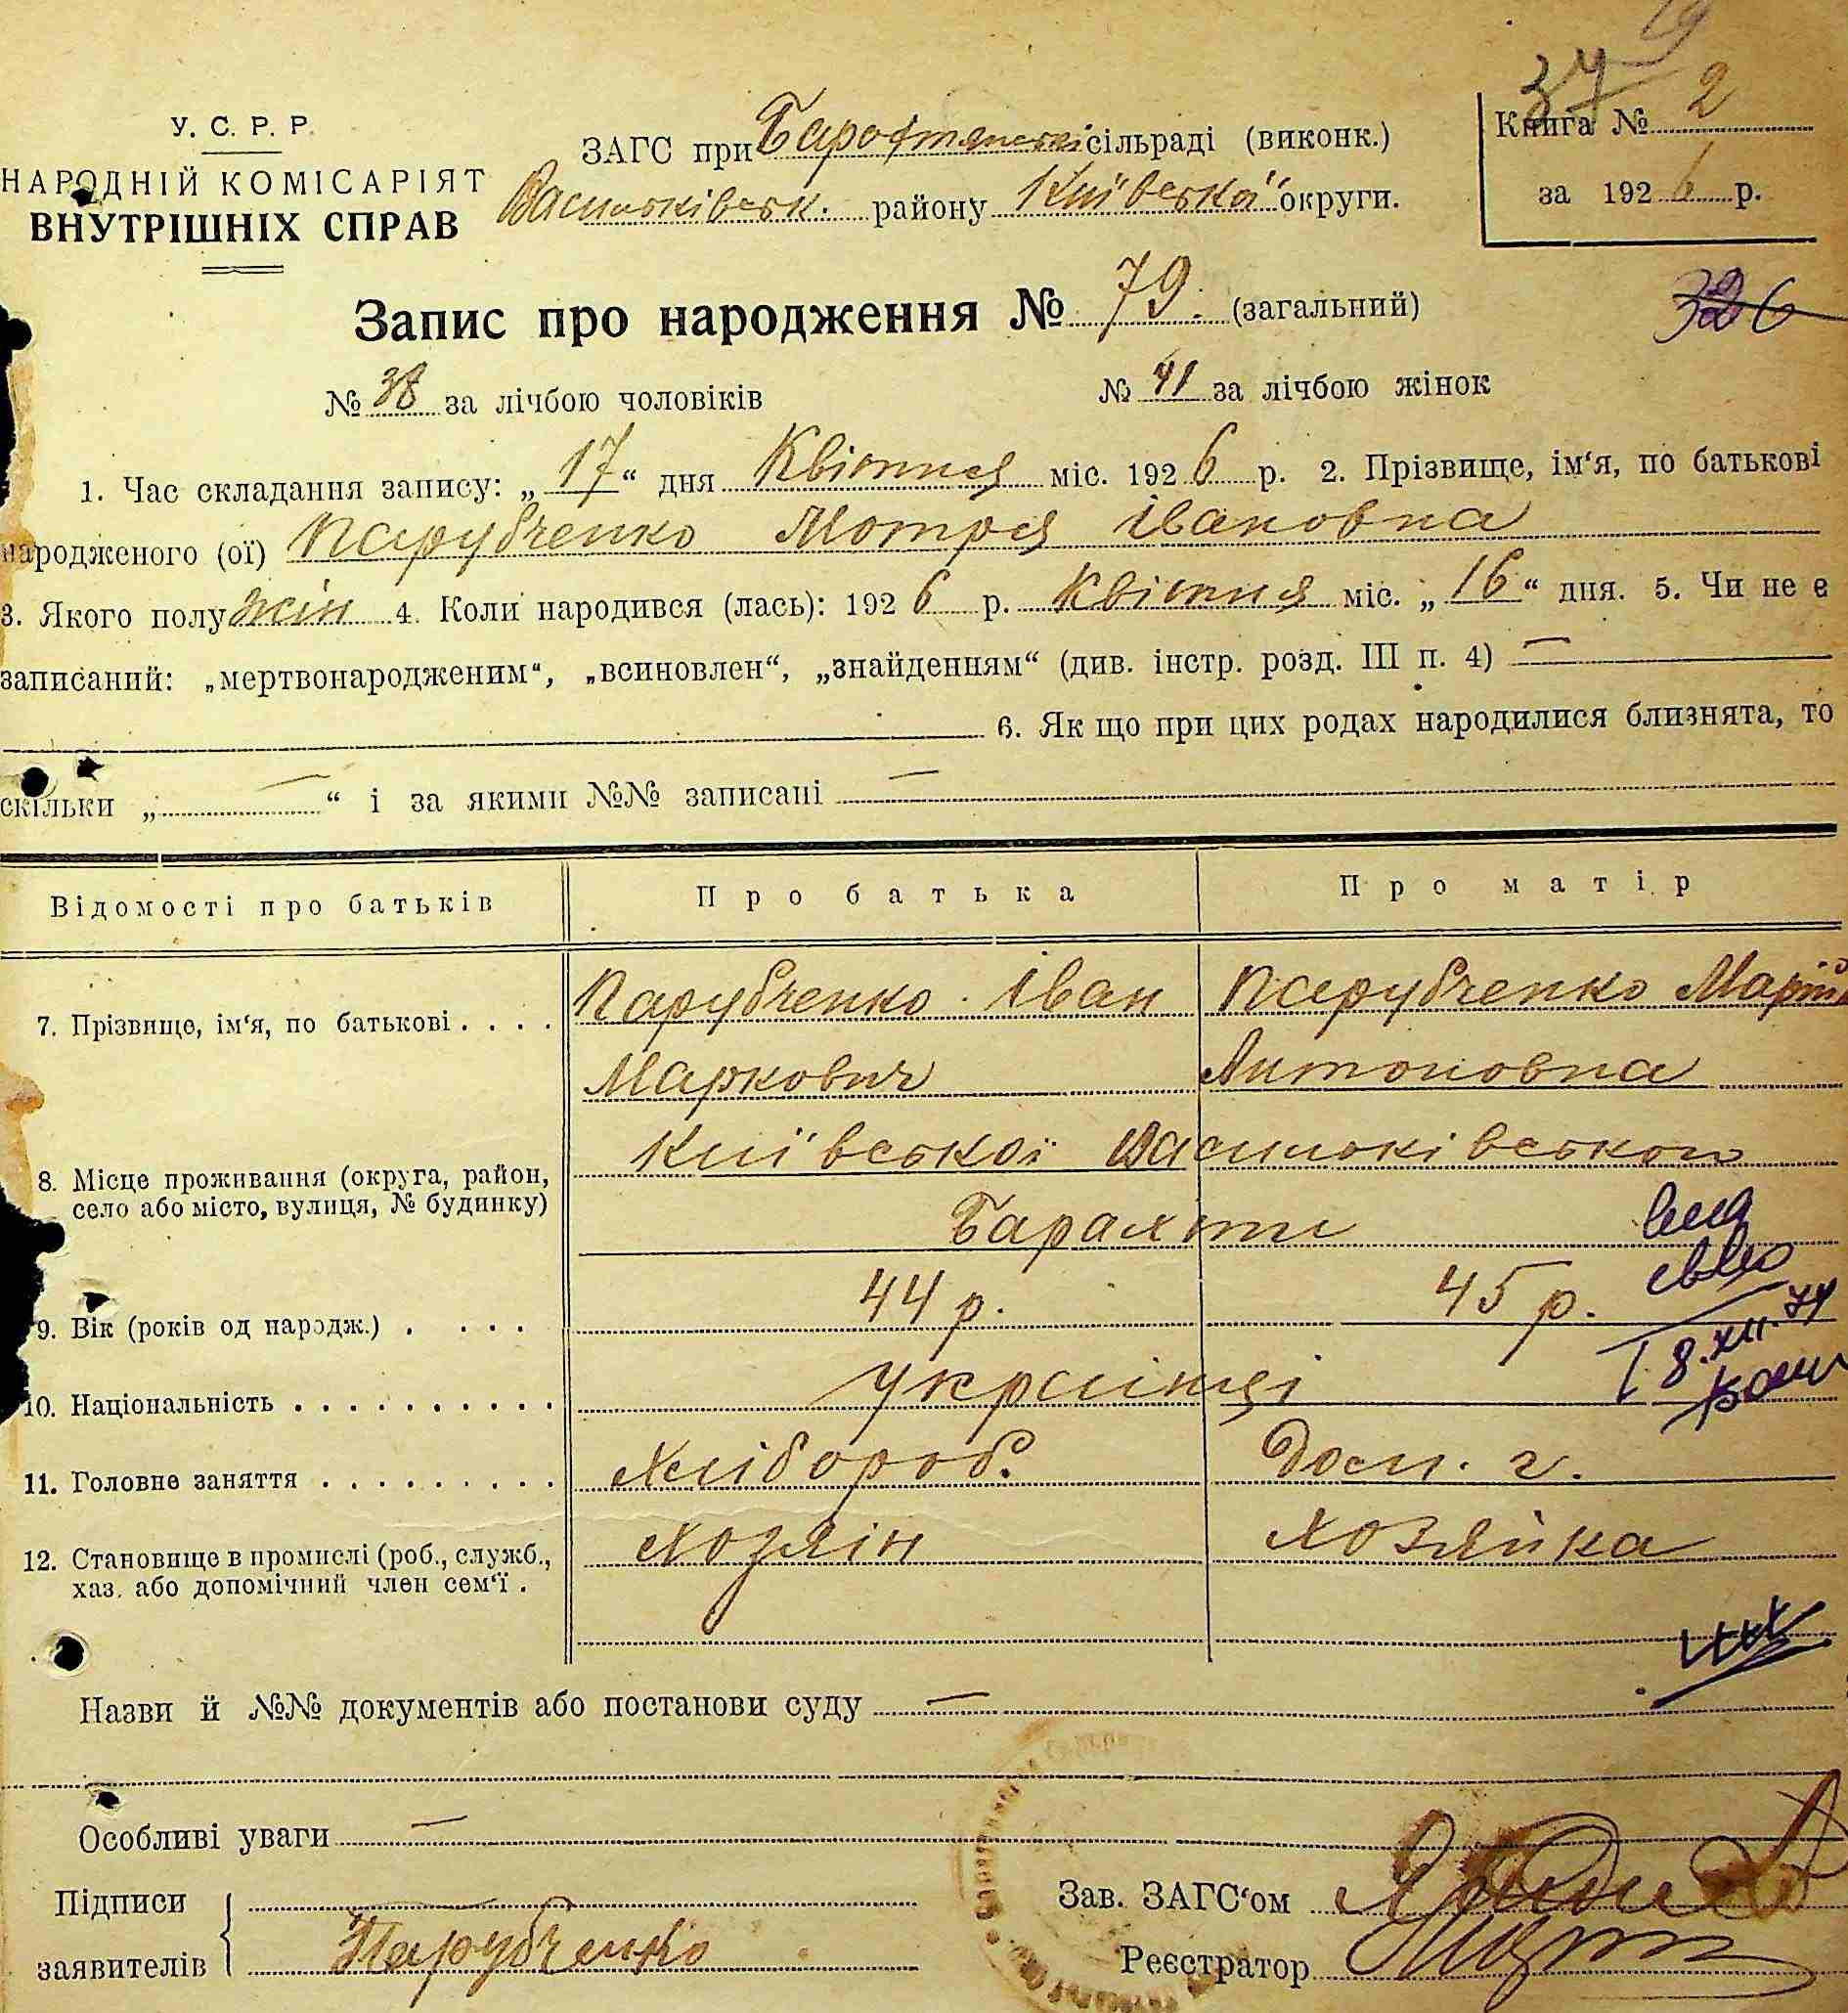 37 19
У. С. Р. Р.
НАРОДНІЙ КОМІСАРІЯТ
ВНУТРІШНІХ СПРАВ
ЗАГС при сільраді (виконк.)
Васильківськ. району Київської округи.
Книга № 2
за 1926 р.
Запис про народження № 79. (загальний)
326
№ 38 за лічбою чоловіків № 41 за лічбою жінок
1. Час складання запису: „17“ дня Квітня міс. 1926 р. 2. Прізвище, ім‘я, по батькові
народженого (ої) Парубченко Мотря Івановна
3. Якого полу жін 4. Коли народився (лась): 1926 р. Квітня міс. „16“ дня. 5. Чи не е
записаний: „мертвонародженим“, „всиновлен“, „знайденням“ (див. інстр. розд. III п. 4) —
6. Як що при цих родах народилися близнята, то
скільки „ — “ і за якими №№ записані —
Відомості про батьків Про батька Про матір
7. Прізвище, ім‘я, по батькові . . . . Парубченко Іван Парубченко Марія
Маркович Антоновна
8. Місце проживання (округа, район, село або місто, вулиця, № будинку) Київської Васильківського
Барахти
9. Вік (років од народж.) . . . . 44 р. 45 р.
18.XII.74
10. Національність . . . . . . . . . . Українці
11. Головне заняття . . . . . . . . . Хлібороб. Дом. г.
12. Становище в промислі (роб., служб., хаз. або допомічний член сем‘ї . Хозяін Хозяйка
Назви й №№ документів або постанови суду —
Особливі уваги —
Підписи
заявителів Парубченко
Зав. ЗАГС‘ом
Реєстратор